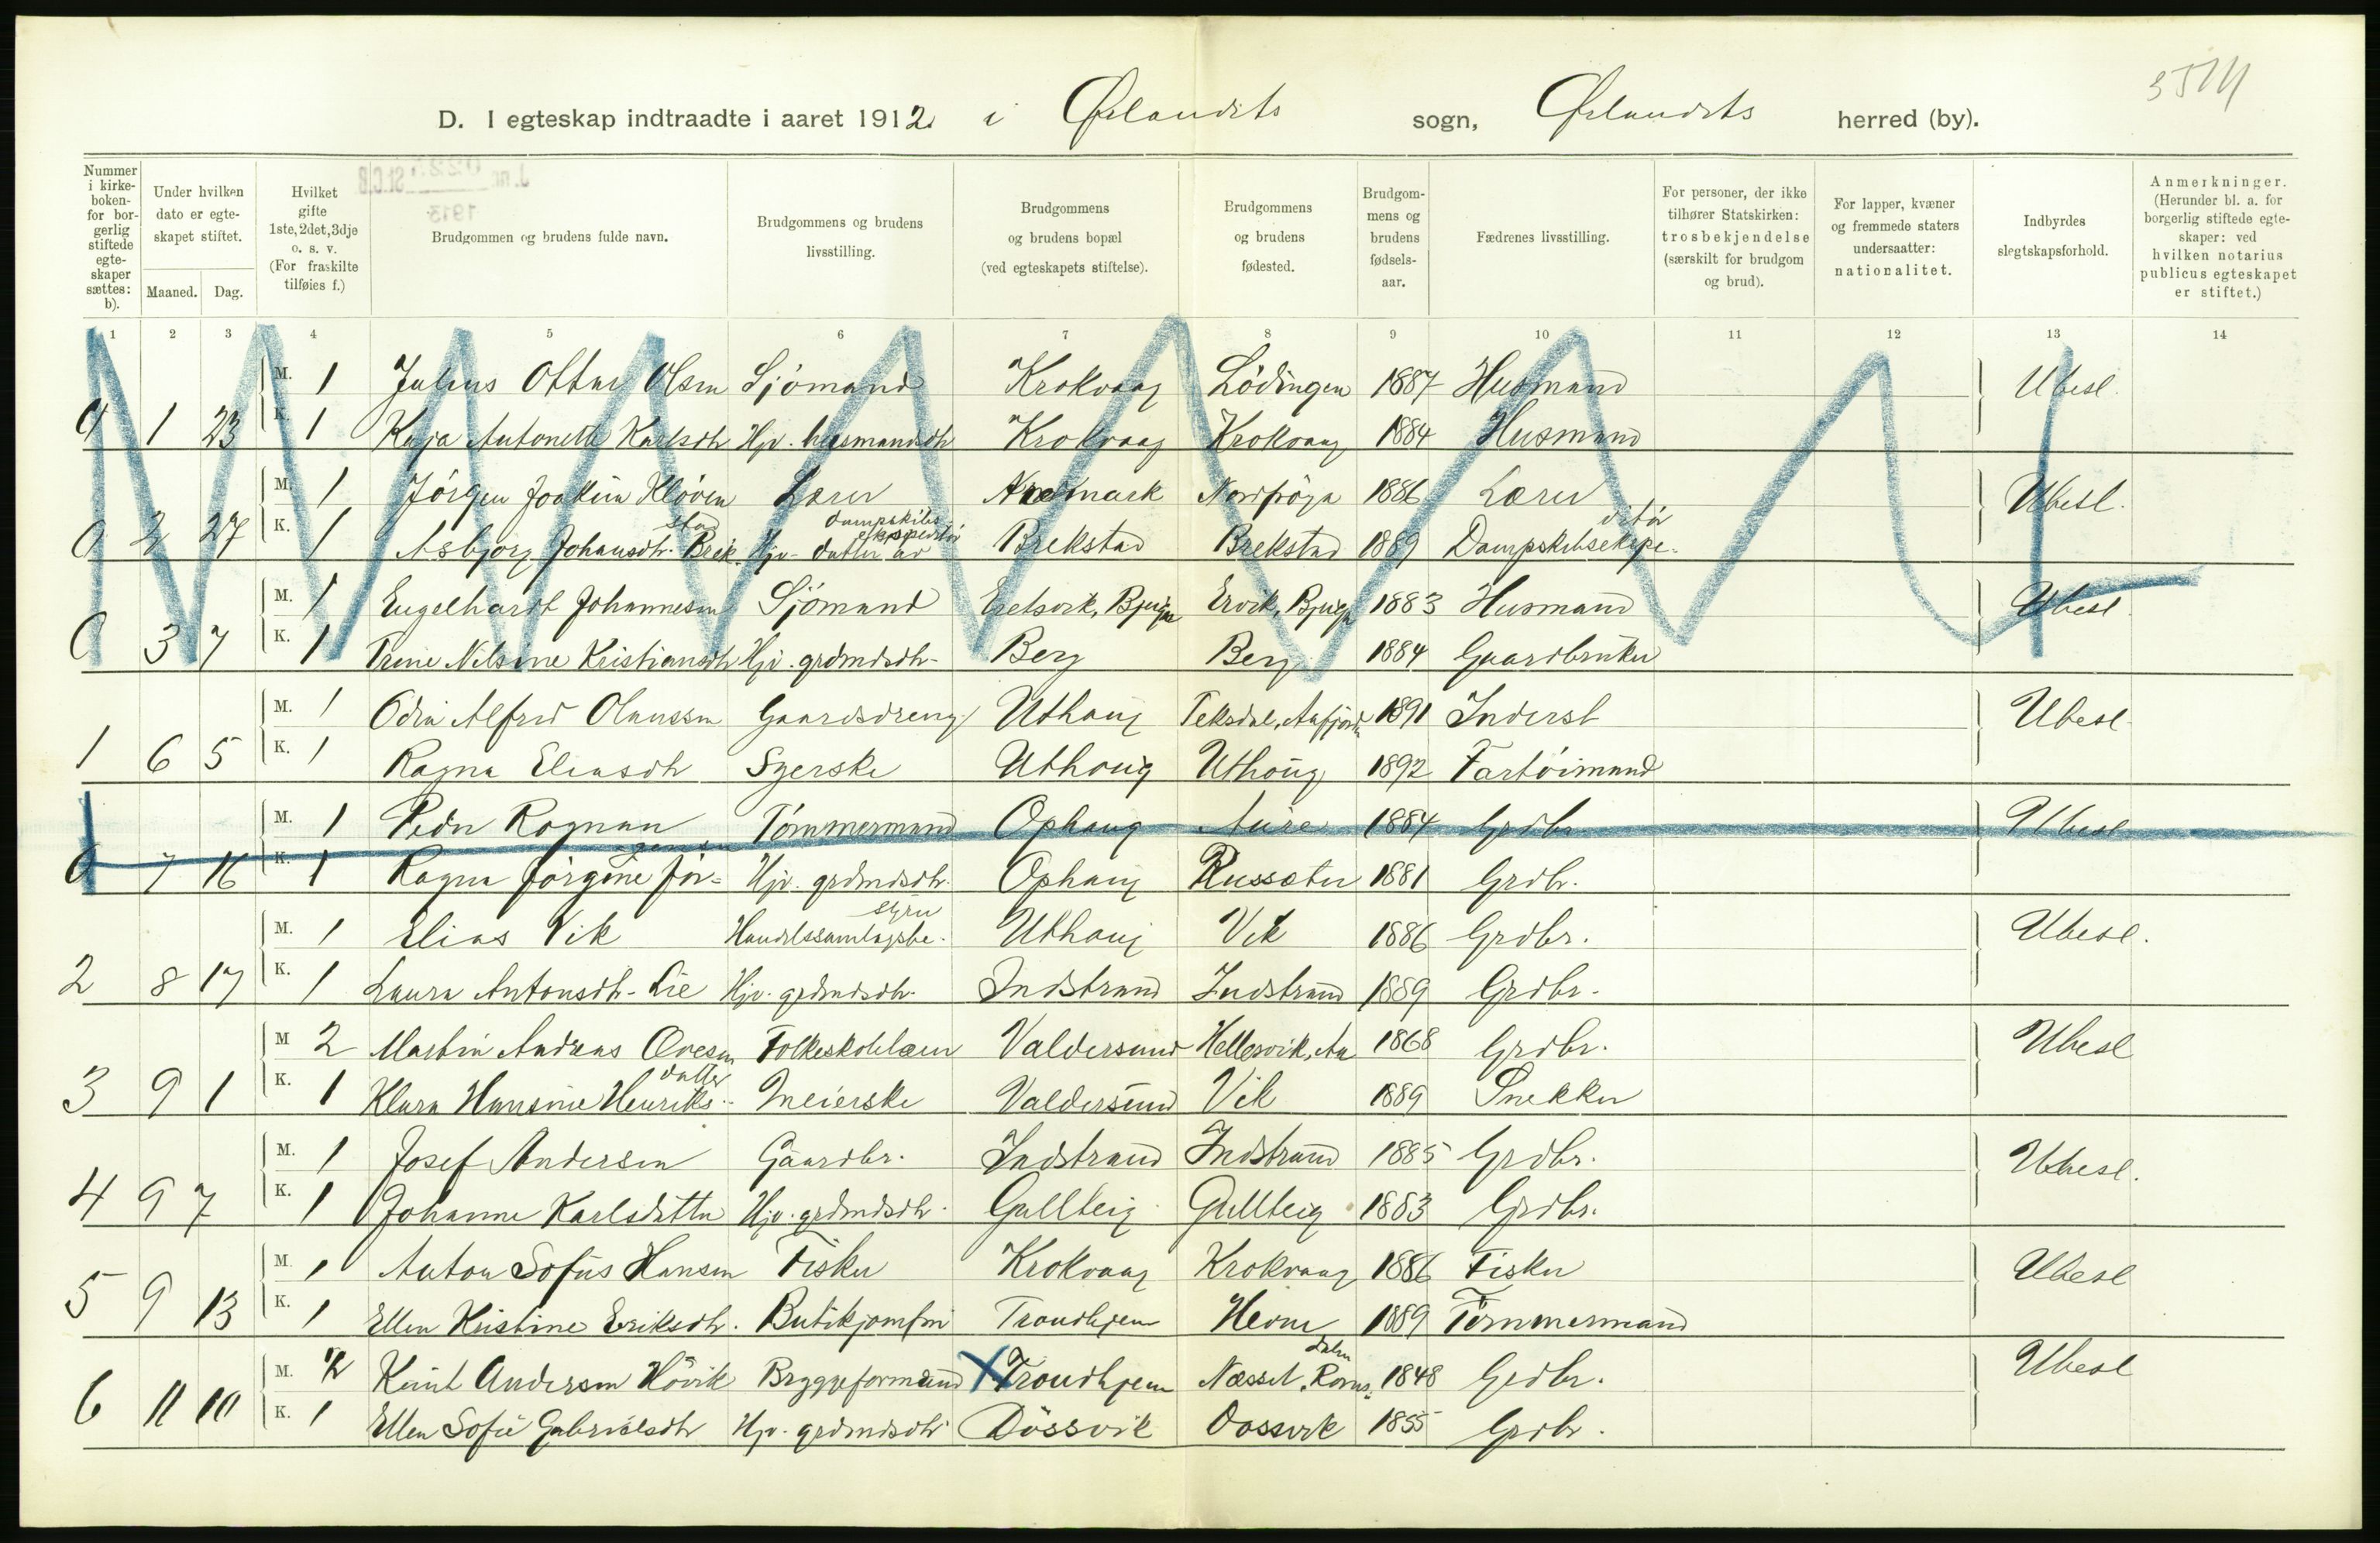 3514
D. I egteskap indtraadte i aaret 1912 i Ørlandets sogn, Ørlandets herred (by).
Nummer i kirkeboken- for borgerlig stiftede egteskaper sættes: b).
Under hvilken dato er egteskapet stiftet.
Maaned. Dag.
Hvilket gifte 1ste, 2det, 3dje o. s. v. (For fraskilte tilføies f.)
Brudgommen og brudens fulde navn.
Brudgommens og brudens livsstilling.
Brudgommens og brudens bopæl (ved egteskapets stiftelse).
Brudgommens og brudens fødested.
Brudgommens og brudens fødselsaar.
Fædrenes livsstilling.
For personer, der ikke tilhører Statskirken: trosbekjendelse (særskilt for brudgom og brud).
For lapper, kvæner og fremmede staters undersaatter: nationalitet.
Indbyrdes slegtskapsforhold.
Anmerkninger. (Herunder bl. a. for borgerlig stiftede egteskaper: ved hvilken notarius publicus egteskapet er stiftet.)
1 2 3 4 5 6 7 8 9 10 11 12 13 14
M. 1 Julius Ottar Olsen Sjömand Krokvaag Lödingen 1887 Husmand Ubesl.
1 23 K. 1 Kaja Antonette Karlsdtr Hjv. husmandsdtr Krokvaag Krokvaag 1884 Husmand
M. 1 Jörgen Joakim Klöven Lærer Nordfröya 1886 Lærer Ubesl.
0 2 27 K. 1 Asbjörg Johansdtr. Brekstad Hjv. datter av dampskibsekspeditör Brekstad Brekstad 1889 Dampskibsekspeditör
M. 1 Engelhardt Johannesen Sjömand Eretsvik, Bjugn Ervik, Bjugn 1883 Husmand Ubesl
0 3 7 K. 1 Trine Nilsine Kristiansdtr Hjv. grdmdsdtr. Berg Berg 1884 Gaardbruker
M. 1 Odin Alfred Olaussen Gaardsdreng Uthaug Teksdal, Aafjord 1891 Inderst Ubesl
1 6 5 K. 1 Ragna Eliasdtr Syerske Uthaug Uthaug 1892 Fartöimand
M. 1 Peder Rognan Tömmermand Ophaug Aure 1884 Grdbr. Ubesl
0 7 16 K. 1 Ragna Jörgine Jörgensen Hjv. grdmdsdtr. Ophaug Russæter 1881 Grdbr.
M. 1 Elias Vik Handelssamlagsbestyrer Uthaug Vik 1886 Grdbr. Ubesl.
2 8 17 K. 1 Laura Antonsdtr. Lie Hjv. grdmdsdtr. Indstrand Indstrand 1889 Grdbr.
M 2 Martin Andreas Ovesen Folkeskolelærer Valdersund Hellesvik, Aa 1868 Grdbr. Ubesl
3 9 1 K. 1 Klara Hansine Henriksdatter Meierske Valdersund Vik 1889 Snekker
M. 1 Josef Andersen Gaardbr. Indstrand Indstrand 1885 Grdbr. Ubesl.
4 9 7 K. 1 Johanne Karlsdatter Hjv. grdmdsdtr. Gullteig Gullteig 1883 Grdbr.
M. 1 Anton Sofus Hansen Fisker Krokvaag Krokvaag 1886 Fisker Ubesl
5 9 13 K. 1 Ellen Kristine Eriksdtr. Butikjomfru Trondhjem Hevne 1889 Tömmermand
M. 2 Knut Andersen Hövik Bryggeformand X Trondhjem Næsset, Romsdalen 1848 Grdbr. Ubesl
6 11 10 K. 1 Ellen Sofie Gabrielsdtr Hjv. grdmdsdtr Dössvik Dössvik 1855 Grdbr.